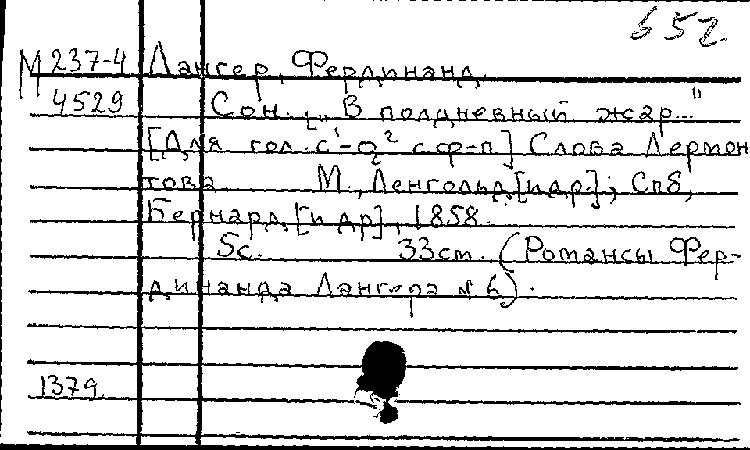 652
М 237-4 Лангер, Фердинанд.
4529 Сон. [„В полдневный жар..."
[Для гол. с¹- 2 с ф-п] Слова Лермон
това М., Ленгольд [и др]; Спб,
Бернард [и др], 1858.
5с. 33см. (Романсы Фер-
динанда Лангера № 6).
1379